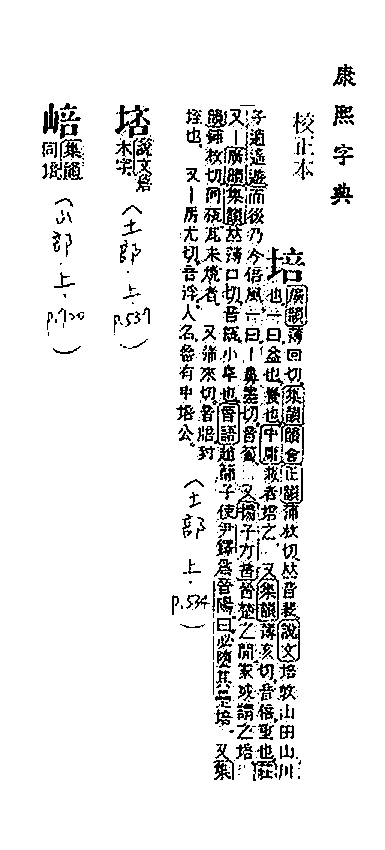 康熙字典
校正本
培
廣韻薄回切集韻韻會正韻蒲枚切𠀤音裴說文培敦山田山川
也一曰益也養也中庸栽者培之 又集韻薄亥切音倍重也莊
子逍遙遊而後乃今培風一曰 又揚子方言晉楚之閒冢或謂之培
又廣韻集韻𠀤薄口切音瓿小阜也晉語趙簡子使尹鐸爲晉陽曰必墮其壘培 又集
韻鋪枚切同坯瓦未燒者 又蒲來切 封
也 又房尤切音浮人名魯有申培公
(土部.上.p.534)
㙛
說文培
本字
(土部.上.p.537)
㟝
集韻
同培
(山部.上.p.700)